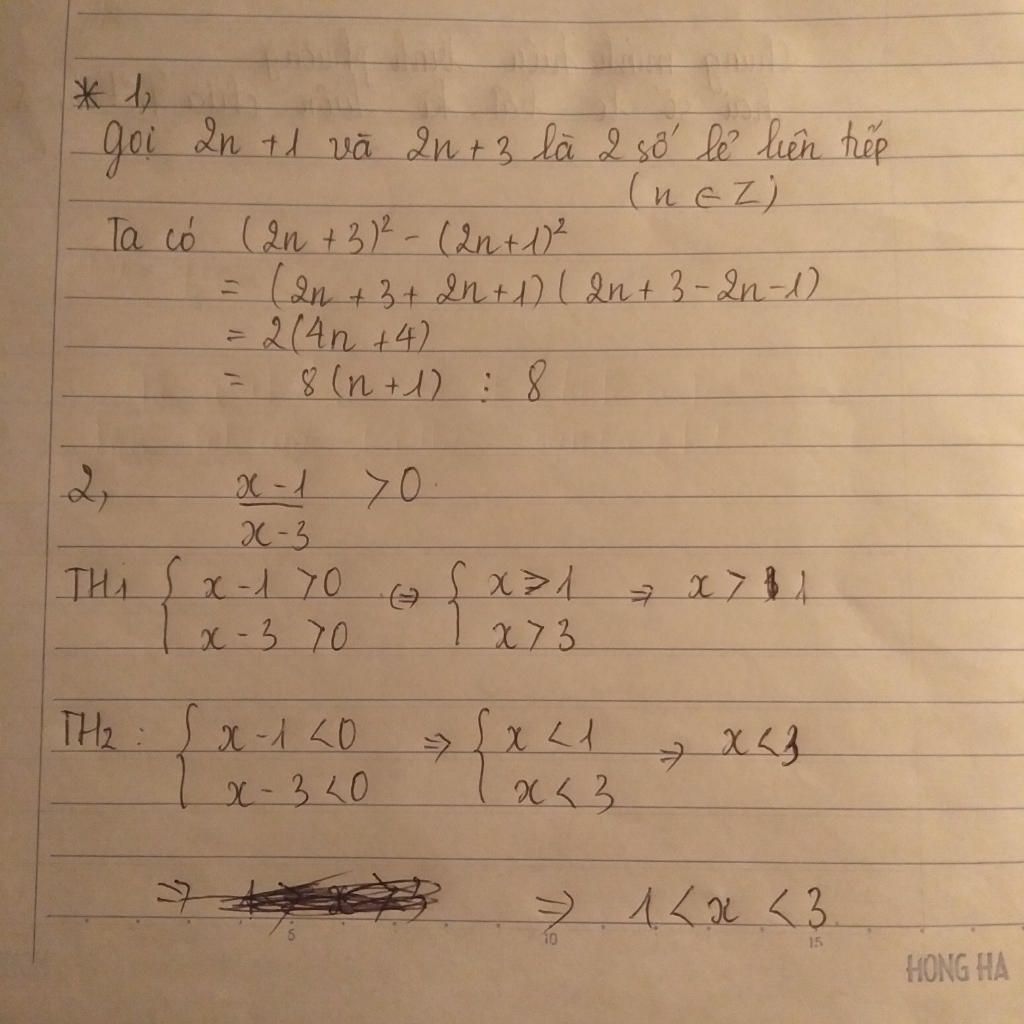 * 1,
Gọi 2n + 1 và 2n + 3 là 2 số lẻ liên tiếp
(n ∈ Z)
Ta có (2n + 3)² - (2n+1)²
= (2n + 3 + 2n+1) ( 2n + 3 - 2n - 1)
= 2(4n + 4)
= 8(n+1) ⋮ 8
2, \frac{x-1}{x-3} > 0
TH1 { x - 1 > 0 ⇔ { x > 1 ⇒ x > 1
x - 3 > 0 x > 3
TH2 : { x - 1 < 0 ⇒ { x < 1 ⇒ x < 3
x - 3 < 0 x < 3
⇒ ⇒ 1 < x < 3
5 10 15
HONG HA